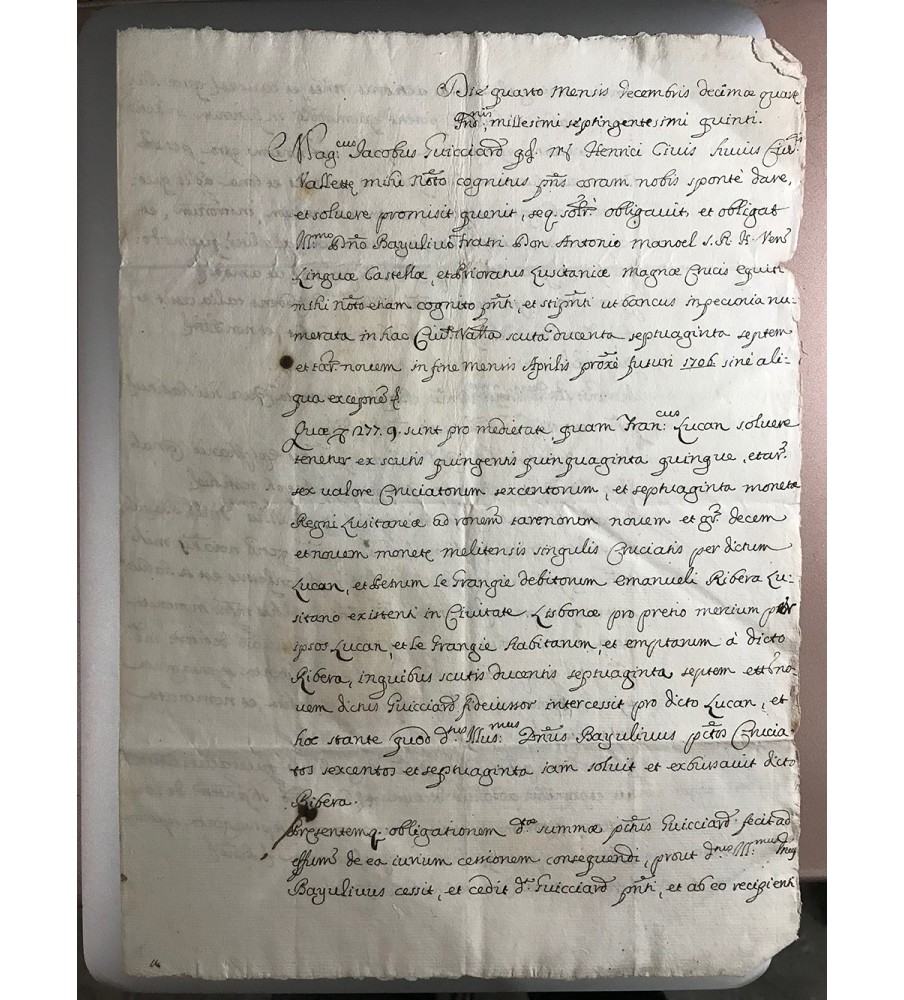 Die quarto mensis decembris decimæ quartæ
Indnis millesimi septingentesimi quinti.
Mag:cus Jacobus Guicciard qd. mci Henrici Civis huius Civis
Vallettę mihi Noto cognitus pns coram nobis sponte dare,
et soluere promisit quenit, seq. obligauit, et obligat
Ill:mo Dno Bayulivo Fratri Don Antonio manoel s. R. H. Ven
Linguæ Castellæ, et Prioratus Lusitaniæ magnæ Crucis equiti
mihi Noto etiam cognito pnti, et stipnti ut bancus in pecunia nu:
merata in hac Civte Vatta scuta ducenta septuaginta septem
et tar. nouem in fine mensis Aprilis proxe futuri 1706 sine ali:
qua excepne
Quæ 277. 9. sunt pro medietate quam Fran:cus Lucan soluere
tenetur ex scutis quingentis quinquaginta quinque, et ar.
sex ualore Cruciatorum sexcentorum, et septuaginta monetæ
Regni Lusitaneæ ad ronem tarenorum nouem et gr. decem
et nouem monetę melitensis singulis Cruciatis per dictum
Lucan, et Petrum le Grangie debitorum emanueli Ribera Lu:
sitano existenti in Civitate Lisbonæ pro pretio mercium per
ipsos Lucan, et le Grangie habitarum, et emptarum à dicto
Ribera, in quibus scutis ducentis septuaginta septem et no:
uem dictus Guicciard fideiussor intercessit pro dicto Lucan, et
hoc stante quod d:tus Illus:mus Dnus Bayulivus pctos Crucia
tos sexcentos et septuaginta iam soluit et exbursauit dicto
Ribera.
Presentemq. obligationem dtæ summæ pctus Guicciard fecit ad
effum de ea iurium cessionem consequendi, prout d:nus Ill:mus
Bayulivus cessit, et cedit d:to Guicciard pnti, et ab eo recipienti